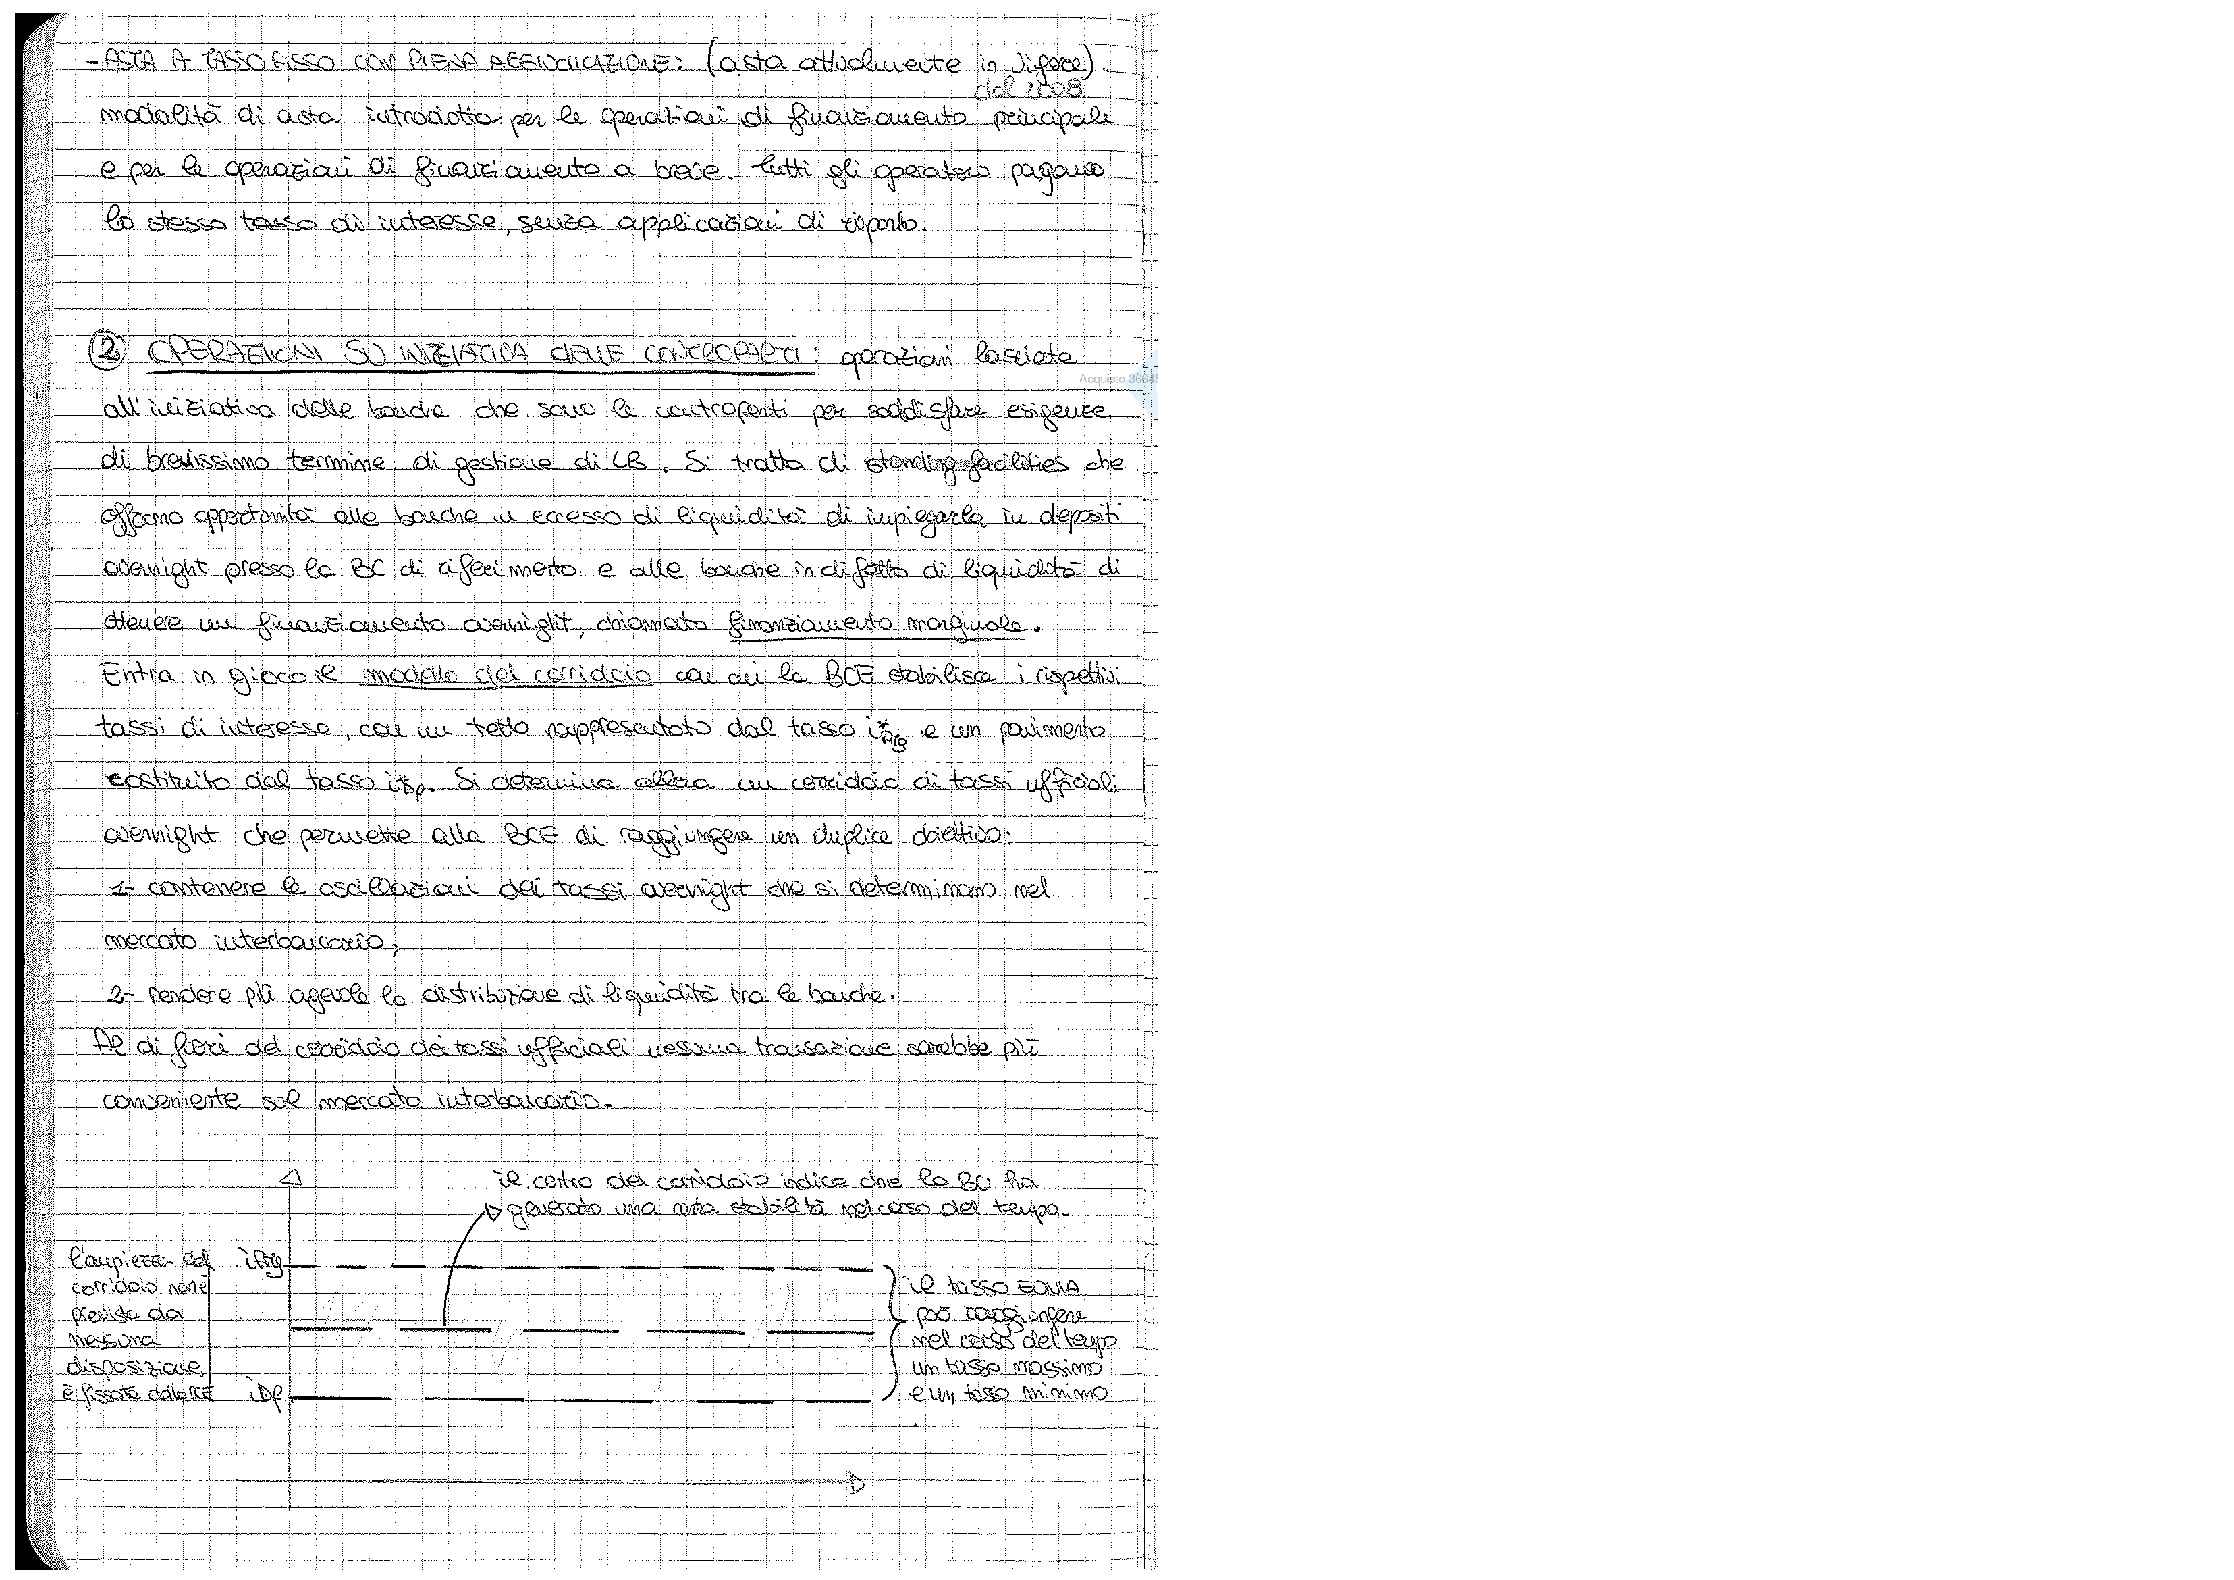 - ASTA A TASSO FISSO CON PIENA AGGIUDICAZIONE: (asta attualmente in vigore)
dal 2008
modalità di asta introdotta per le operazioni di finanziamento principali
e per le operazioni di finanziamento a breve. Tutti gli operatori pagano
lo stesso tasso di interesse, senza applicazioni di riparto.
② OPERAZIONI SU INIZIATIVA DELLE CONTROPARTI: operazioni lasciate
Acquisto
all'iniziativa delle banche che sono le controparti per soddisfare esigenze
di brevissimo termine di gestione di LB. Si tratta di standing facilities che
offrono opportunità alle banche in eccesso di liquidità di impiegarla in depositi
overnight presso la BC di riferimento e alle banche in difetto di liquidità di
ottenere un finanziamento overnight, chiamato finanziamento marginale.
Entra in gioco il modello del corridoio con cui la BCE stabilisce i rispettivi
tassi di interesse, con un tetto rappresentato dal tasso e un pavimento
costituito dal tasso iDp. Si determina allora un corridoio di tassi ufficiali
overnight che permette alla BCE di raggiungere un duplice obiettivo:
1- contenere le oscillazioni dei tassi overnight che si determinano nel
mercato interbancario;
2- rendere più agevole la distribuzione di liquidità tra le banche.
Al di fuori del corridoio dei tassi ufficiali nessuna transazione sarebbe più
conveniente sul mercato interbancario.
il centro del corridoio indica che la BC ha
generato una certa stabilità nel corso del tempo.
l'ampiezza del
corridoio non è
prevista da
nessuna
disposizione,
è fissata dalla BCE
iDp
il tasso EONIA
può raggiungere
nel corso del tempo
un tasso massimo
e un tasso minimo